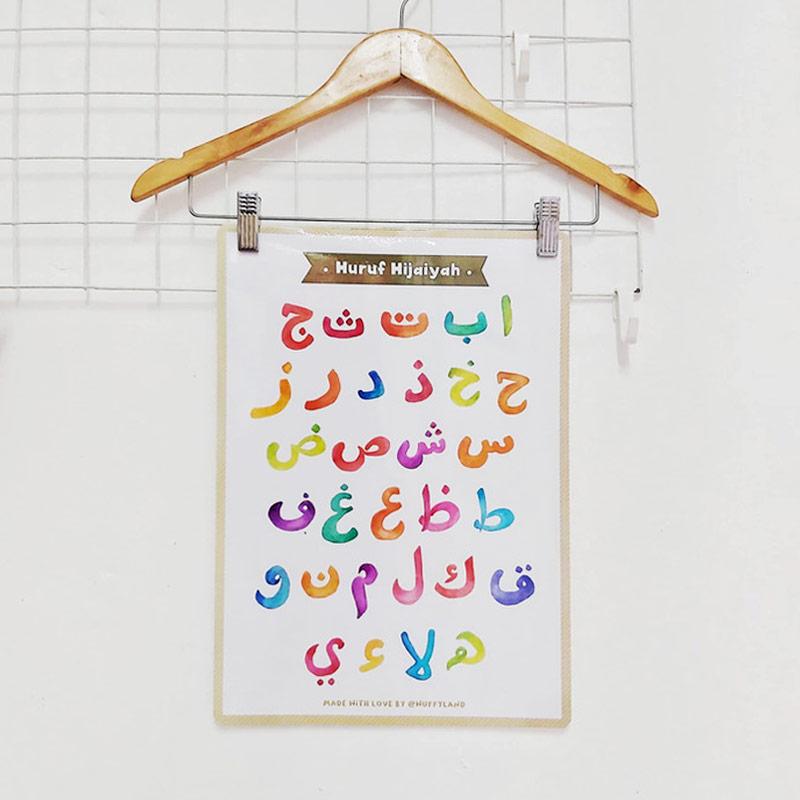 Huruf Hijaiyah
ا ب ت ث ج
ح خ ذ د ر ز
س ش ص ض
ط ظ ع غ ف
ق ك ل م ن و
ه لا ء ي
MADE WITH LOVE BY @NUFFYLAND